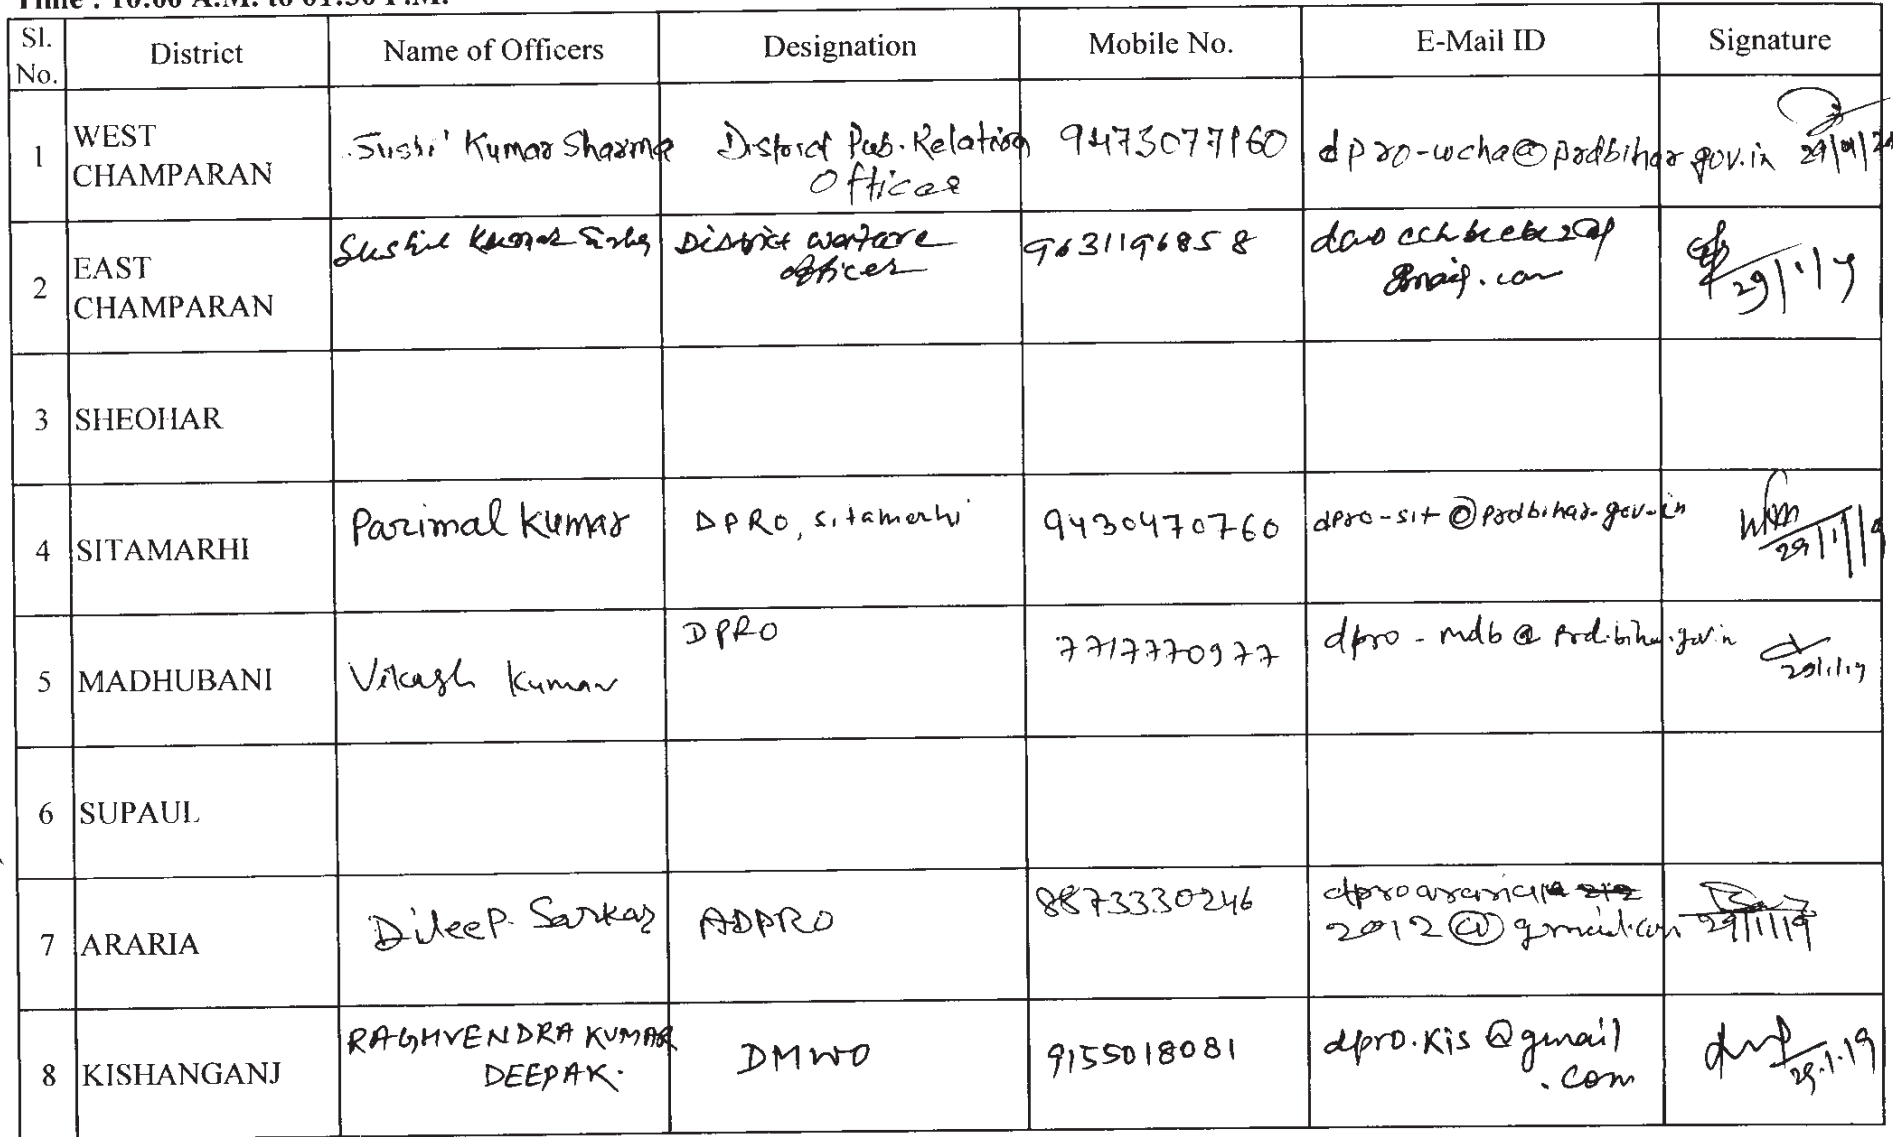 Time : 10:00 A.M. to 01:30 P.M.
Sl. No. District Name of Officers Designation Mobile No. E-Mail ID Signature
1 WEST CHAMPARAN Sushil Kumar Sharma District Pub. Relation Officer 9473077160 dpro-wcha@prdbihar.gov.in
2 EAST CHAMPARAN Sushil Kumar District welfare officer 9631196858 gmail.com 29/1/19
3 SHEOHAR
4 SITAMARHI Parimal Kumar DPRO, Sitamarhi 9430470760 dpro-sit@prdbihar.gov.in 29/1/19
5 MADHUBANI Vikash Kumar DPRO 7717770977 dpro-mdb@prd.bihar.gov.in 29/1/19
6 SUPAUL
7 ARARIA Dileep. Sarkar ADPRO 8873330246 2012@gmail.com 29/1/19
8 KISHANGANJ RAGHVENDRA KUMAR DEEPAK. DMWO 9155018081 dpro.kis@gmail.com 29.1.19